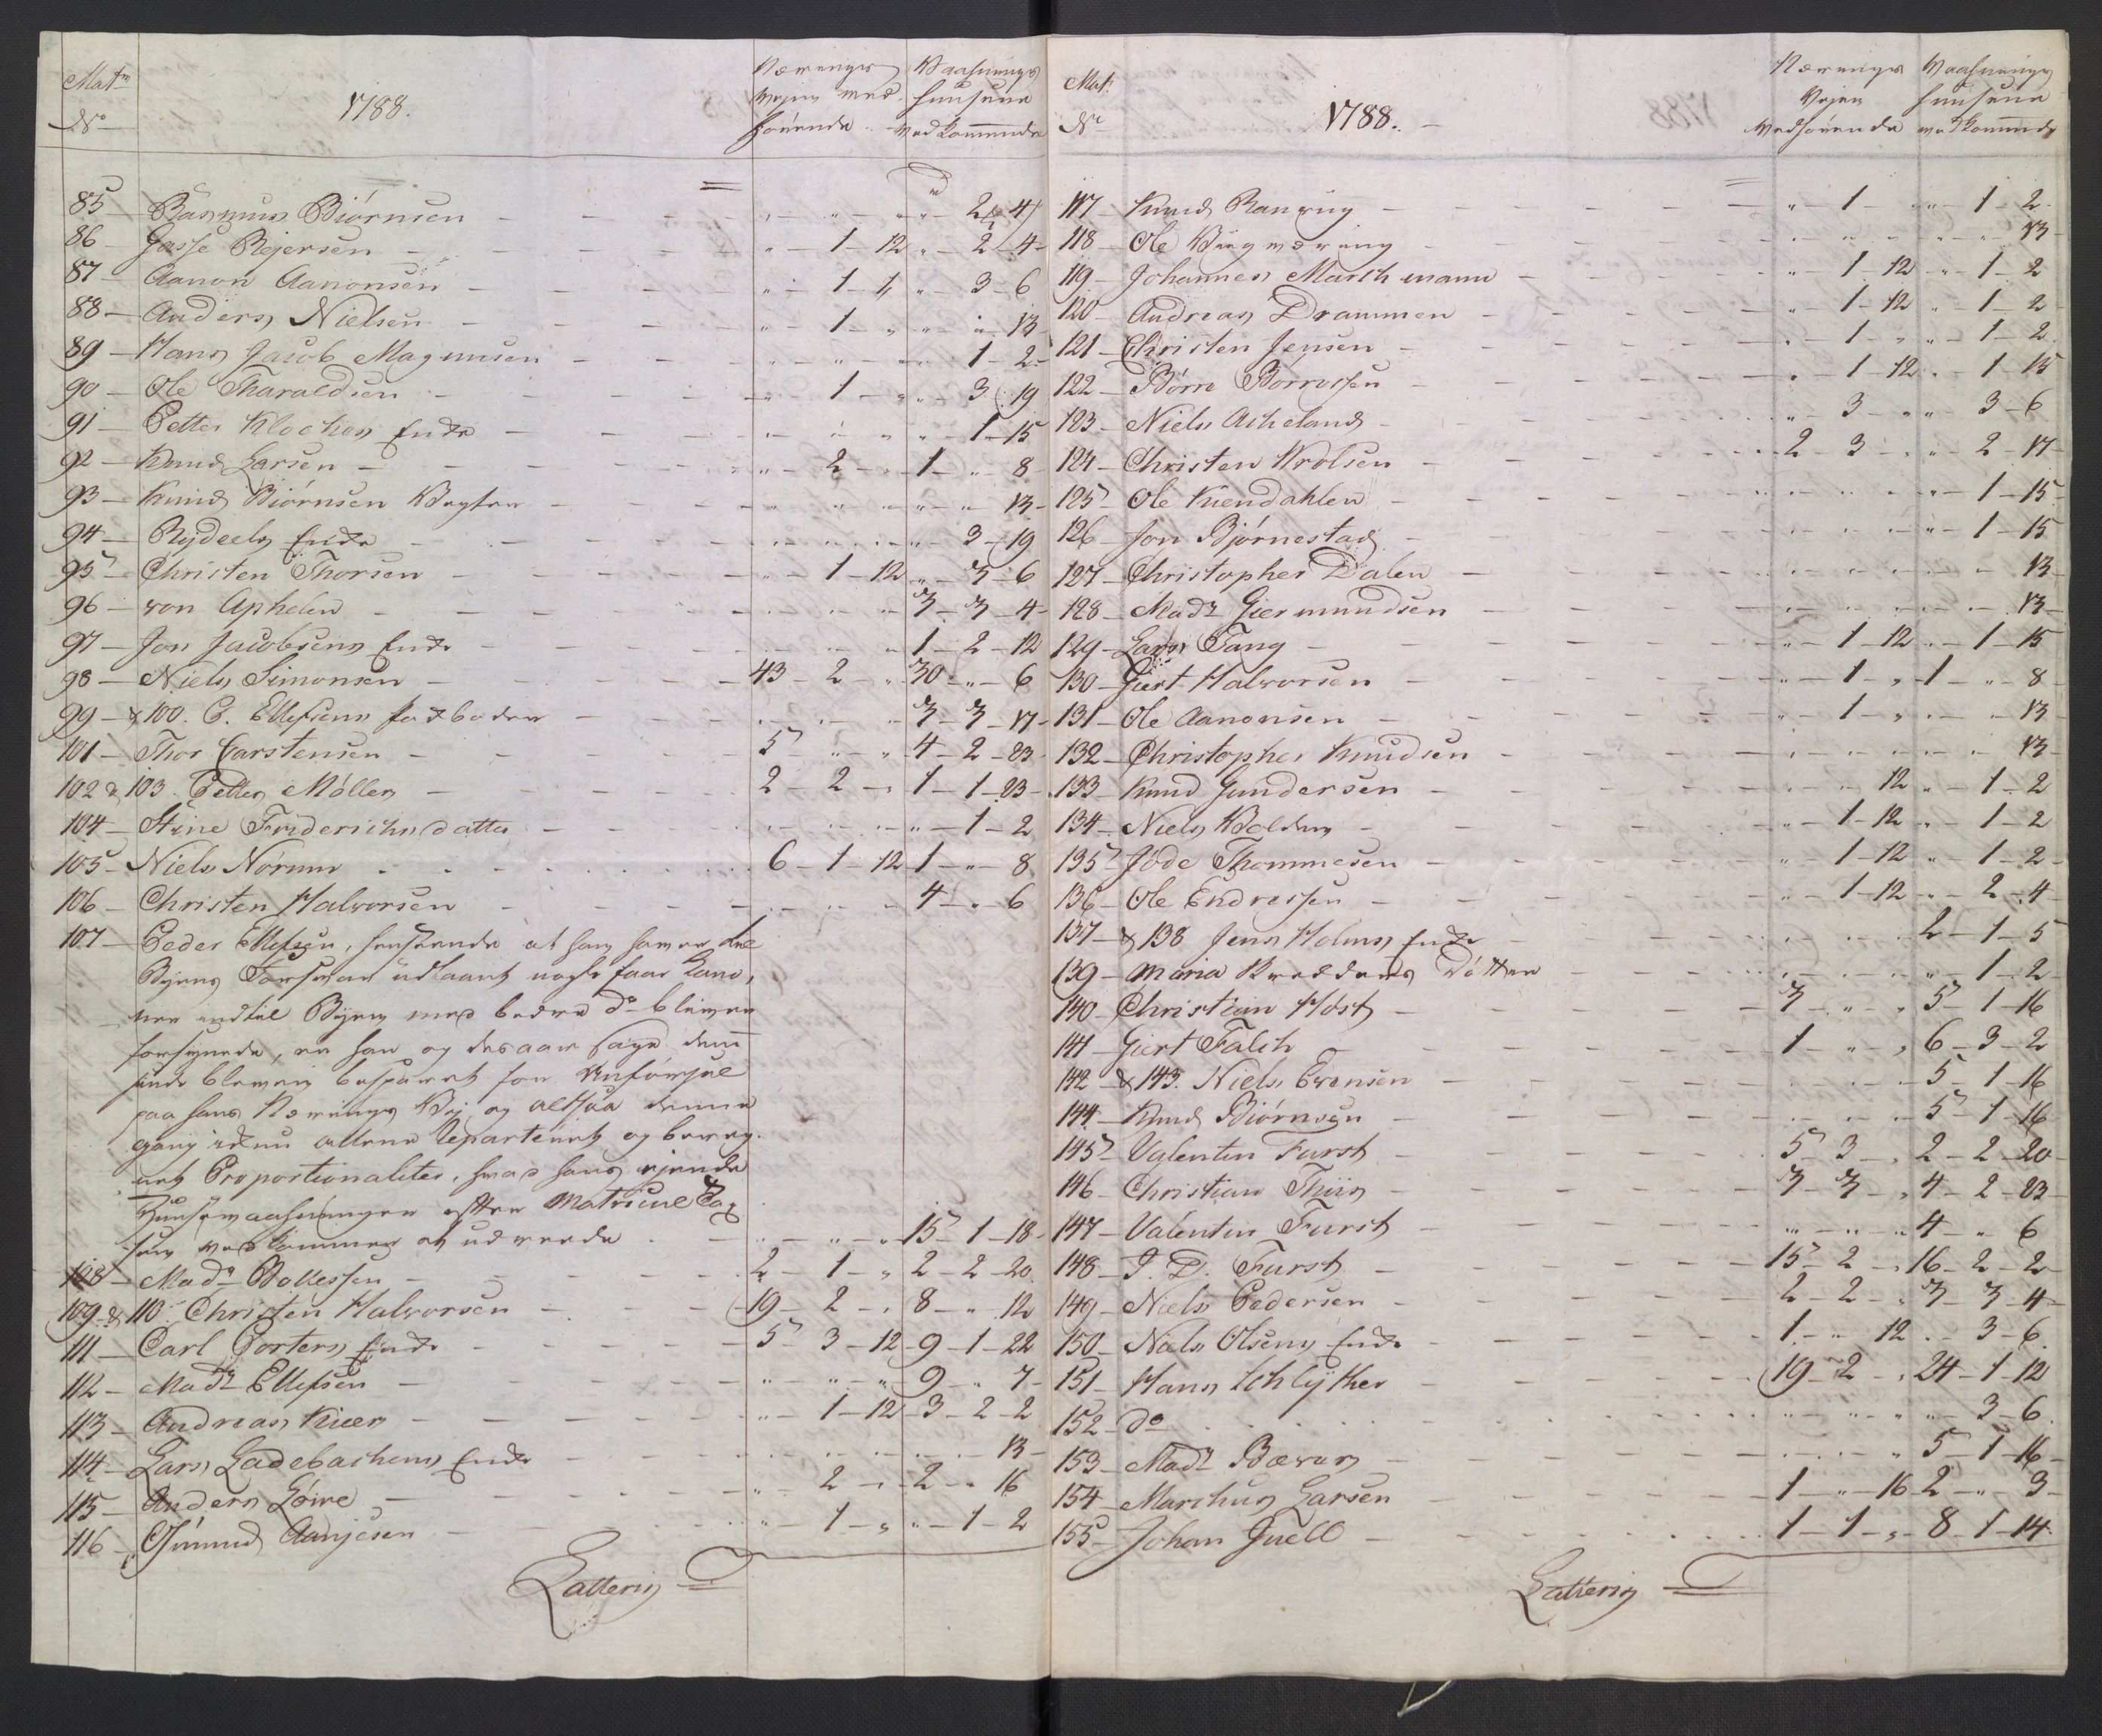 Mat:
No
1788.
Nærings Vejen vedkommende
Vaaningshuusene vedkommende
85 — Rasmus Biørnsen — „ — „ — „ „ — 2 — 4
86 — Gasse Rejersen — „ — 1 — 12 „ — 2 — 4
87 — Aanon Aanonsen — „ — 1 — „ „ — 3 — 6
88 — Anders Nielsen — „ — 1 — „ „ — „ — 13
89 — Hans Jacob Magnusen — „ — „ — „ „ — 1 — 2
90 — Ole Tharaldsen — „ — 1 — „ „ — 3 — 19
91 — Petter Klochers Enke — „ — „ — „ „ — 1 — 15
92 — Knud Larsen — „ — 2 — „ 1 — „ — 8
93 — Knud Biørnsen Vægter — „ — „ — „ „ — „ — 13
94 — Rydeels Enke — „ — „ — „ „ — 3 — 19
95 — Christen Thorsen — „ — 1 — 12 „ — 3 — 6
96 — von Aphelen — „ — „ — „ 3 — 3 — 4
97 — Jon Jacobsens Enke — „ — „ — „ 1 — 2 — 12
98 — Niels Simonsen — 43 — 2 — „ 30 — „ — 6
99 — & 100. P. Ellefsens Pakboder — „ — „ — „ 3 — 3 — 17
101 — Thor Carstensen — 5 — „ — „ 4 — 2 — 23
102 & 103. Petter Møller — 2 — 2 — „ 1 — 1 — 23
104 — Stine Friderichsdatter — „ — „ — „ „ — 1 — 2
105 — Niels Nørum — 6 — 1 — 12 1 — „ — 8
106 — Christen Halvorsen — „ — „ — „ 4 — „ — 6
107 — Peder Ellefsen, henseende at han haver til
Byens Forsvar udlaant nogle faae Kano,
ner indtil Byen med bedre do bliver
forsynede, er han og desaar
blevet befriet for
paa hans Nærings Vej og altsaa denne
gang ikkun allene Reparteret og bereg,
net Proportionaliter, hvad hans ejende
Huusevaaninger efter Matricul Tax
ham vedkommer at udreede — „ — „ — „ 15 — 1 — 18
108 — Made Bollessen — 2 — 1 — „ 2 — 2 — 20
109 & 110. Christen Halvorsen — 19 — 2 — „ 8 — „ — 12
111 — Carl Porters Enke — 5 — 3 — 12 9 — 1 — 22
112 — Made Ellefsen — „ — „ — „ 9 — „ — 7
113 — Andreas Kiær — „ — 1 — 12 3 — 2 — 2
114 — Lars Ladebachens Enke — „ — „ — „ „ — „ — 13
115 — Anders Løwe — „ — 2 — „ 2 — „ — 16
116 — Osmund Aanjesen — „ — 1 — „ „ — 1 — 2
Latteris
Mat:
No
1788.
Nærings Vejen vedkommende
Vaaningshuusene vedkommende
117 — Knud Ranvig — „ — 1 — „ „ — 1 — 2
118 — Ole — „ — „ — „ „ — „ — 13
119 — Johannes Marchmann — „ — 1 — 12 „ — 1 — 2
120 — Andreas Drammen — „ — 1 — 12 „ — 1 — 2
121 — Christen Jensen — „ — 1 — „ „ — 1 — 2
122 — Børre Borresen — „ — 1 — 12 „ — 1 — 15
123 — Niels Acheland — „ — 3 — „ „ — 3 — 6
124 — Christen Wrolsen — 2 — 3 — „ „ — 2 — 17
125 — Ole Kiendahlen — „ — „ — „ „ — 1 — 15
126 — Jon Bjørnestad — „ — „ — „ „ — 1 — 15
127 — Christopher Dalen — „ — „ — „ „ — „ — 13
128 — Made Giermundsen — „ — „ — „ „ — „ — 13
129 — Lars Tang — „ — 1 — 12 „ — 1 — 15
130 — Giert Halvorsen — „ — 1 — „ 1 — „ — 8
131 — Ole Aanonsen — „ — 1 — „ „ — „ — 13
132 — Christopher Knudsen — „ — „ — „ „ — „ — 13
133 — Knud Gundersen — „ — „ — 12 „ — 1 — 2
134 — Niels Bolden — „ — 1 — 12 „ — 1 — 2
135 — Jøde Thommesen — „ — 1 — 12 „ — 1 — 2
136 — Ole Endressen — „ — 1 — 12 „ — 2 — 4
137 — & 138 Jens Holms Enke — „ — „ — „ 2 — 1 — 5
139 — Maria Bredders Døttre — „ — „ — „ „ — 1 — 2
140 — Christian Høst — 3 — „ — „ 5 — 1 — 16
141 — Giert Falch — 1 — „ — „ 6 — 3 — 2
142 — & 143. Niels Evensen — „ — „ — „ 5 — 1 — 16
144 — Knud Biørnsen — „ — „ — „ 5 — 1 — 16
145 — Valentin Furst — 5 — 3 — „ 2 — 2 — 20
146 — Christian Thiis — 3 — 3 — „ 4 — 2 — 23
147 — Valentin Furst — „ — „ — „ 4 — „ — 6
148 — J. D. Furst — 15 — 2 — „ 16 — 2 — 2
149 — Niels Pedersen — 2 — 2 — „ 3 — 3 — 4
150 — Niels Olsens Enke — 1 — „ — 12 „ — 3 — 6
151 — Hans Schlytter — 19 — 2 — „ 24 — 1 — 12
152 — do — „ — „ — „ „ — 3 — 6
153 — Made Bæver — „ — „ — „ 5 — 1 — 16
154 — Marchus Larsen — 1 — „ — 16 2 — „ — 3
155 — Johan Juell — 1 — 1 — „ 8 — 1 — 14
Latteris